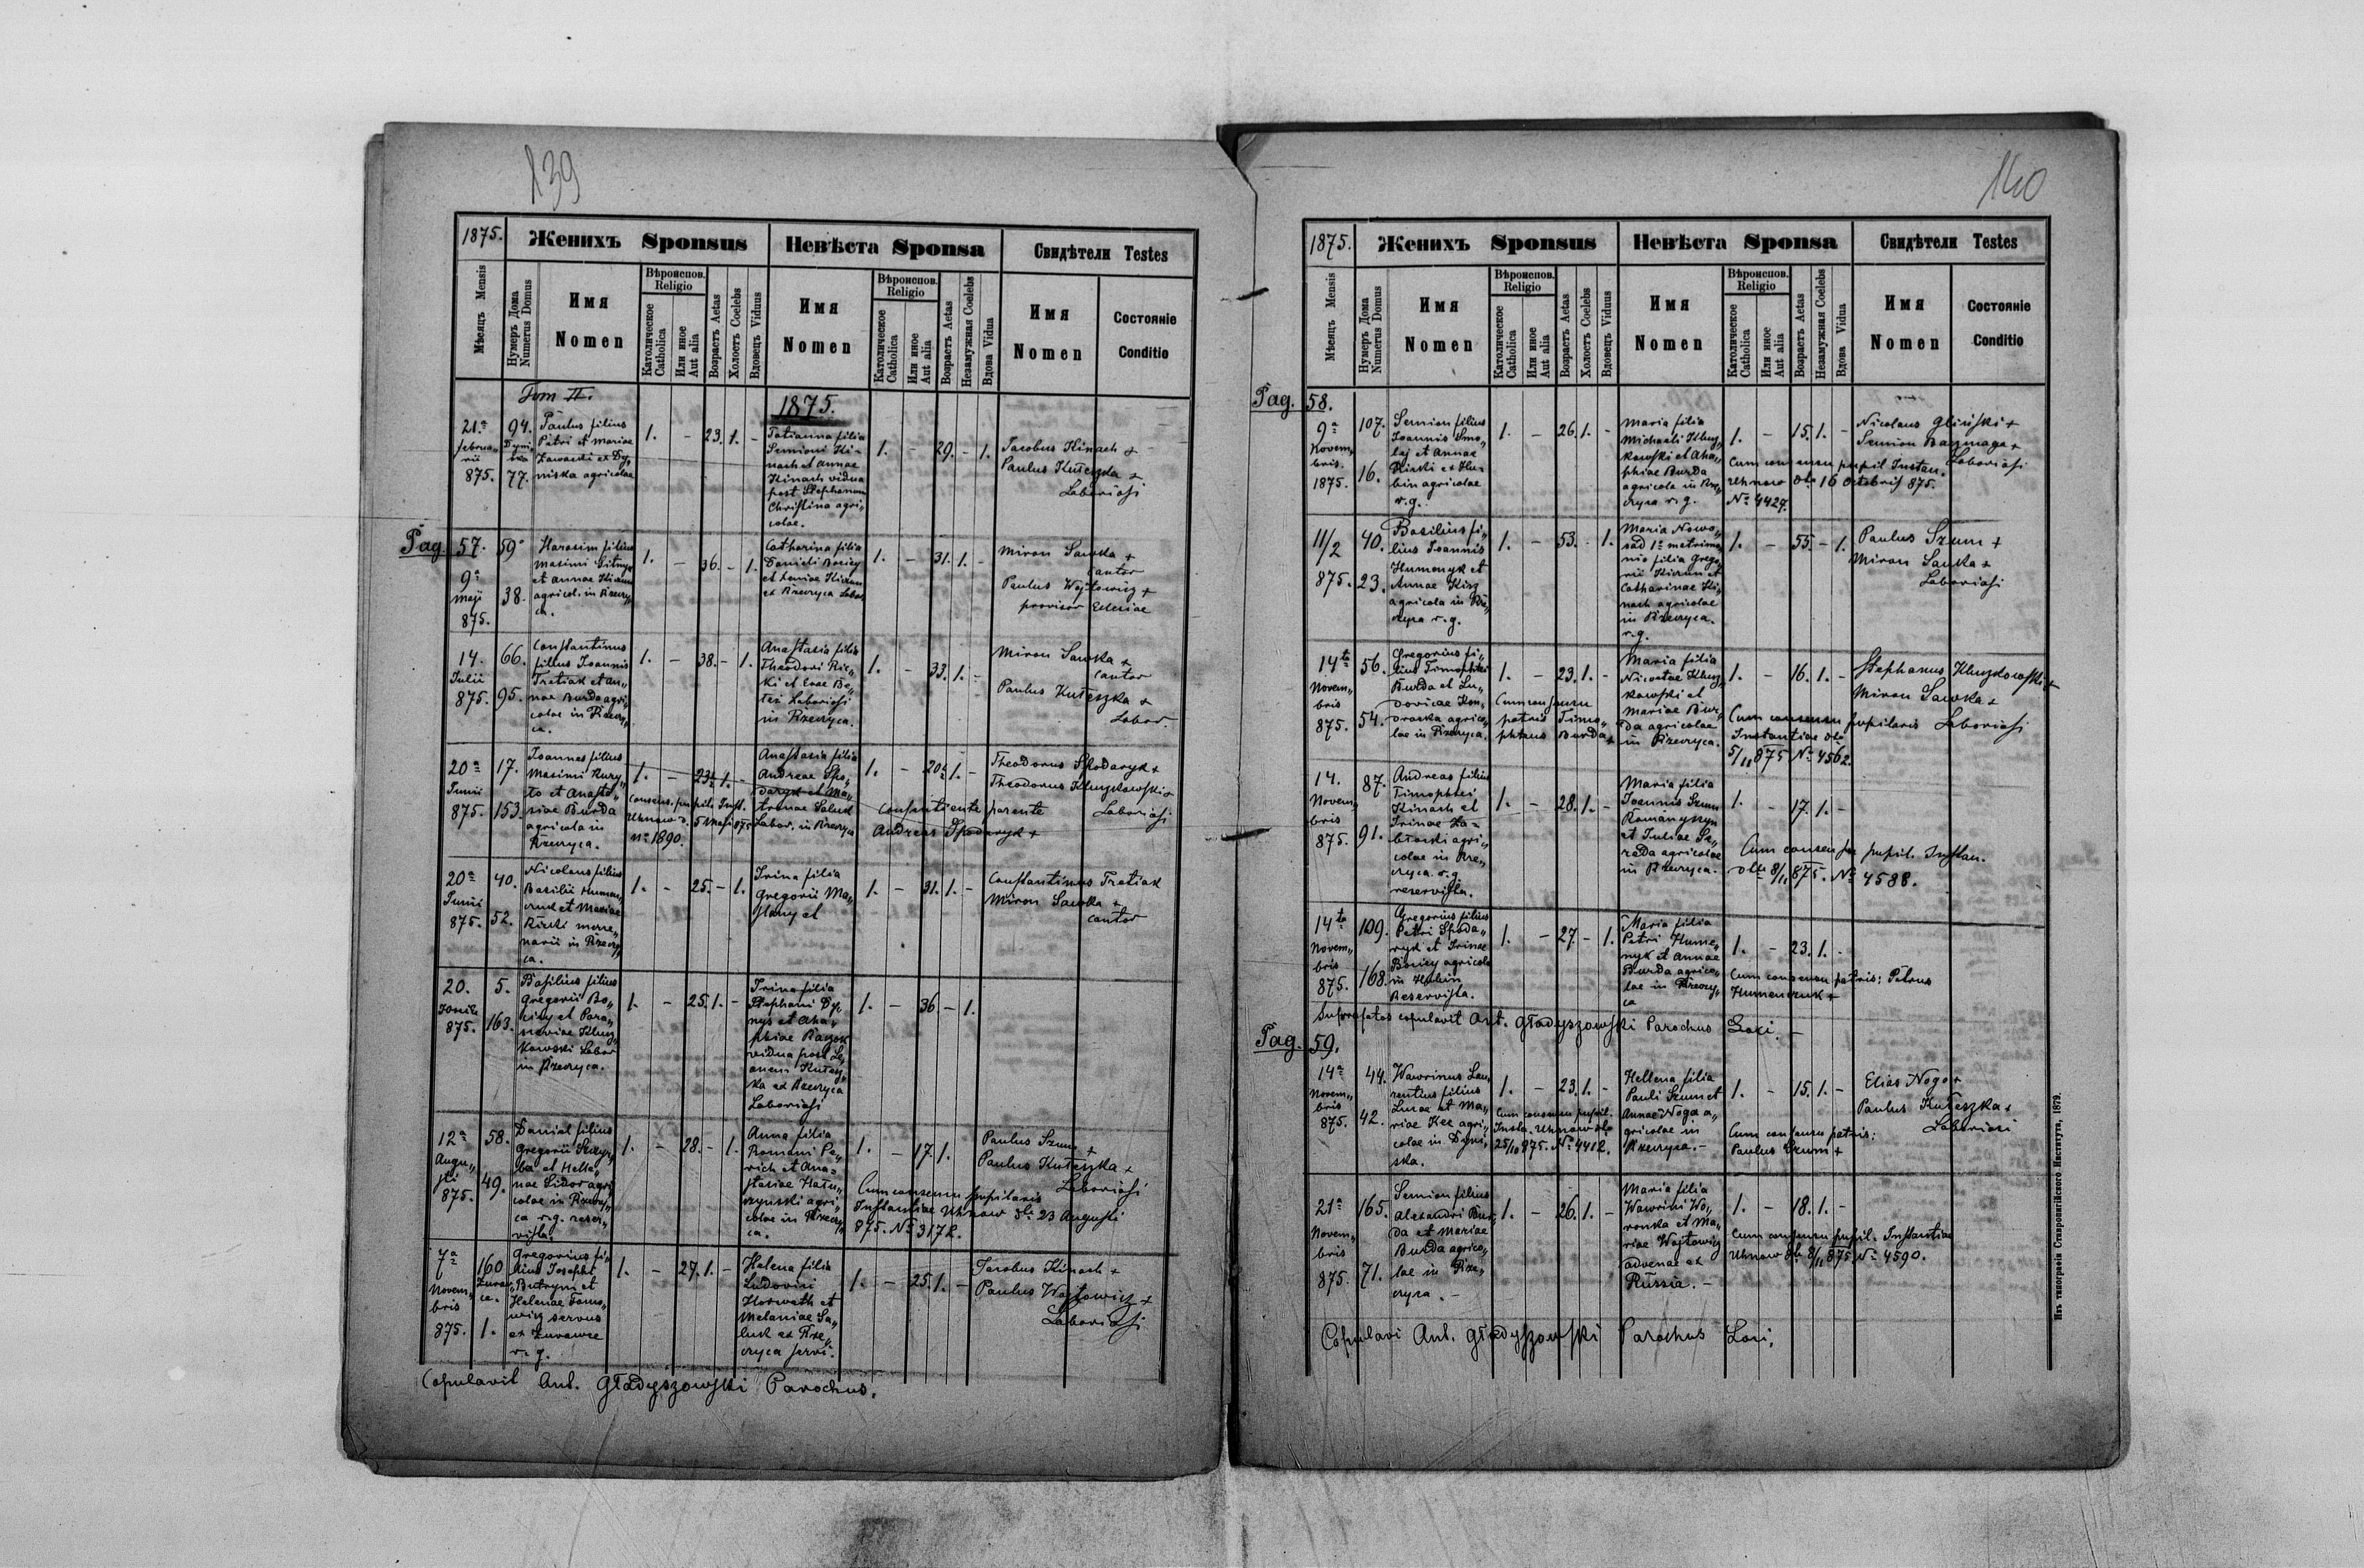 139
1875.
Женихъ Sponsus
Невѣста Sponsa
Свидѣтели Testes
Мѣсяцъ Mensis
Нумеръ Дома
Numerus Domus
Имя
Nomen
Вѣроиспов.
Religio
Католическое
Catholica
Или иное
Aut alia
Возрастъ Aetas
Холостъ Coelebs
Вдовецъ Viduus
Имя
Nomen
Вѣроиспов.
Religio
Католическое
Catholica
Или иное
Aut alia
Возрастъ Aetas
Незамужная Coelebs
Вдова Vidua
Имя
Nomen
Состоянie
Conditio
Tom II.
1875.
21.a
Februa„
rii
875.
94.
77.
Paulus filius
Petri et Mariae
Zawacki ex Dy„
niska agricolae
1. - 23. 1. -
Tatianna filia
Semioni Ki-
nach et Annae
Kinach vidua
post Stephanum
Christina agri„
colae.
1. - 29. - 1.
Jacobus Kinach +
Paulus Kułeszka +
Laboriosi
Pag. 57.
9a
Maji
875.
59
38.
Harasim filius
Maximi
et Annae Kizun
agricol. in Rzeczy„
ca.
1. - 36. - 1.
Catharina filia
Danieli Bociey
et Xeniae Kizun
ex Rzeczyca Labor
1. - 31. 1. -
Miron Sawka +
Cantor
Paulus Wojtowicz +
provisor Eclesiae
14.
Julii
875.
66.
95.
Constantinus
filius Joannis
Tretiak et An„
nae Burda agri„
colae in Rzeczy„
ca.
1. - 38. - 1.
Anastasia filia
Theodori Kic„
ki et Evae Be„
Laboriosi
in Rzeczyca.
1. - 33. 1. -
Miron Sawka +
Cantor
Paulus Kułeszka +
Labor.
20a
Junii
875.
17.
153.
Joannes filius
Maximi Kury„
to et Anasta„
siae Burda
agricola in
Rzeczyca.
1. - 23½ 1. -
Consens. pupil. Inst.
Uhnow d. 5 Maji 875
No 1890.
Anastasia filia
Andreae Spo„
daryk et Ma„
tronae Saluk
Labor. in Rzeczyca
1. - 20½ 1. -
Consentiente parente
Andreas Spodaryk +
Theodorus Spodaryk +
Theodorus Kluczkowski +
Laboriosi
20a
Junii
875.
40.
52.
Nicolaus filius
Basilii Human„
czuk et Mariae
Kicki merce„
narii in Rzeczy„
ca.
1. - 25. - 1.
Irina filia
Gregorii Ma„
et
1. - 31. 1. -
Constantinus Tretiak
Miron Sawka +
Cantor
20.
Junii
875.
5.
163.
Basilius filius
Gregorii Bo„
ciey et Para„
sceviae Klucz„
kowski Labor
in Rzeczyca.
1. - 25. 1. -
Irina filia
Stephani Dy„
nys et Aha„
phiae
vidua post Le„
onem Kułesz„
ka ex Rzeczyca
Laboriosi
1. - 36 - 1.
12a
Augu„
sti
875.
58.
49.
Daniel filius
Gregorii Skrzy„
ba et Helle„
nae Sidor agri„
colae in Rzeczy„
ca r. g. reser„
vista.
1. - 28. - 1.
Anna filia
Romani Pe„
rich et Ana„
stasiae Hału„
szynski agri„
colae in Rzeczy„
ca.
1. - 17. 1.
Cum consensu pupilaris
Instantiae Uhnow dto 23 Augusti
875. No 3172.
Paulus Szum +
Paulus Kułeszka +
Laboriosi
7a
Novem„
bris
875.
160
1.
Gregorius fi„
lius Josephi
Butrym et
Helenae Tomo„
wicz servus
ex Zurawce
r. g.
1. - 27. 1. -
Helena filia
Ludovici
Horwath et
Melaniae Sa„
luk ex Rze„
czyca servi.
1. - 25. 1. -
Jacobus Kinach +
Paulus Wojtowicz +
Laboriosi
Copulavit Ant. Gładyszowski Parochus.
140
1875.
Женихъ Sponsus
Невѣста Sponsa
Свидѣтели Testes
Мѣсяцъ Mensis
Нумеръ Дома
Numerus Domus
Имя
Nomen
Вѣроиспов.
Religio
Католическое
Catholica
Или иное
Aut alia
Возрастъ Aetas
Холостъ Coelebs
Вдовецъ Viduus
Имя
Nomen
Вѣроиспов.
Religio
Католическое
Catholica
Или иное
Aut alia
Возрастъ Aetas
Незамужная Coelebs
Вдова Vidua
Имя
Nomen
Состоянie
Conditio
Pag. 58.
9a
Novem„
bris.
1875.
107.
16.
Semion filius
Joannis Smo„
lej et Annae
Kicki ex Hu„
bin agricolae
r. g.
1. - 26. 1. -
Maria filia
Michaeli Klucz„
kowski et Aha„
phiae Burda
agricola in Rze„
czyca r. g.
1. - 15. 1. -
Cum consensu pupil. Instan.
Uhnow dto 16 Octobris 875.
No 4427.
Nicolaus Gliński +
Semion Bazmaga +
Laboriosi
11/2
875.
40.
23.
Basilius fi„
lius Joannis
Humenyk et
Annae Kicz
agricola in Rze„
czyca r. g.
1. - 53. - 1.
Maria Nowo„
sad 1o matrimo„
nio filia Grego„
rii Kizun et
Catharinae Ki„
nach agricolae
in Rzeczyca.
r. g.
1. - 55. - 1.
Paulus Szum +
Miron Sawka +
Laboriosi
14ta
Novem„
bris
875.
56.
54.
Gregorius fi„
lius Timophtei
Burda et Lu„
dovicae Kon„
draska agrico„
lae in Rzeczyca.
1. - 23. 1. -
Cum consensu
patris Timo„
phteus Burda +
Maria filia
Nicetae Klucz„
kowski et
Mariae Bur„
da agricolae
in Rzeczyca.
1. - 16. 1. -
Cum consensu pupilaris
Instantiae dto
5/11 875 No 4562.
Stephanus Kluczkowski +
Miron Sawka +
Laboriosi
14.
Novem„
bris
875.
87.
91.
Andreas filius
Timophtei
Kinach et
Irinae Za-
błocki agri„
colae in Rze„
czyca. r. g.
reservista.
1. - 28. 1. -
Maria filia
Joannis Szum
Romanyszyn
et Juliae Se„
reda agricolae
in Rzeczyca.
1. - 17. 1. -
Cum consensu pupil. Instan.
dto 8/11 875. No 4588.
14ta
Novem„
bris
875.
109.
168.
Gregorius filius
Petri Spoda„
ryk et Irinae
Bociey agricola
in Hubin
Reservista.
1. - 27 - 1.
Maria filia
Petri Hume„
nyk et Annae
Burda agrico„
lae in Rzeczy„
ca
1. - 23. 1. -
Cum consensu patris: Petrus
Humenczuk +
Suprafatos copulavit Ant. Gładyszowski Parochus Loci. -
Pag. 59.
14a
Novem„
bris
875.
44.
42.
Wawrinus Lau„
rentius filius
Lucae et Ma„
riae Kec agri„
colae in Dyni„
ska.
1. - 23. 1. -
Cum consensu pupil.
Insta. Uhnow dto
25/10 875. No 4412.
Hellena filia
Pauli Szum et
Annae Noga a„
gricolae in
Rzeczyca. -
1. - 15. 1. -
Cum consensu patris:
Paulus Szum +
Elias Noga +
Paulus Kułeszka +
Laboriosi
21a
Novem„
bris
875.
165.
71.
Semion filius
Alexandri Bur„
da et Mariae
Burda agrico„
lae in Rze„
czyca. -
1. - 26. 1. -
Maria filia
Wawrini Wo„
ronka et Ma„
riae Wojtowicz
advenae ex
Russia. -
1. - 18. 1. -
Cum consensu pupil. Instantiae
Uhnow dto 8/11 875 No 4590.
Copulavi Ant. Gładyszowski Parochus Loci.
Изъ типографiи Ставропигiйского Института, 1879.